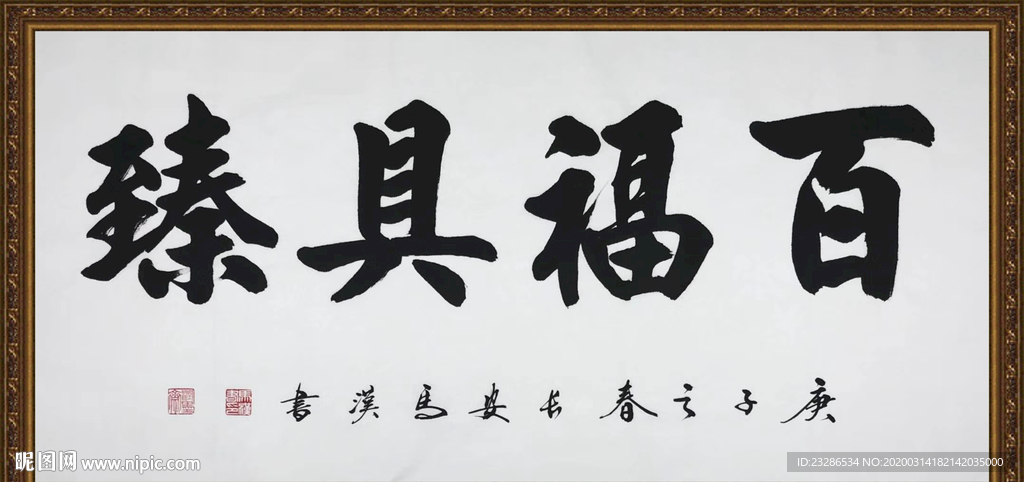 百福具臻
庚子之春長安馬漢書
昵图网 www.nipic.com
ID:23286534 NO:20200314182142035000